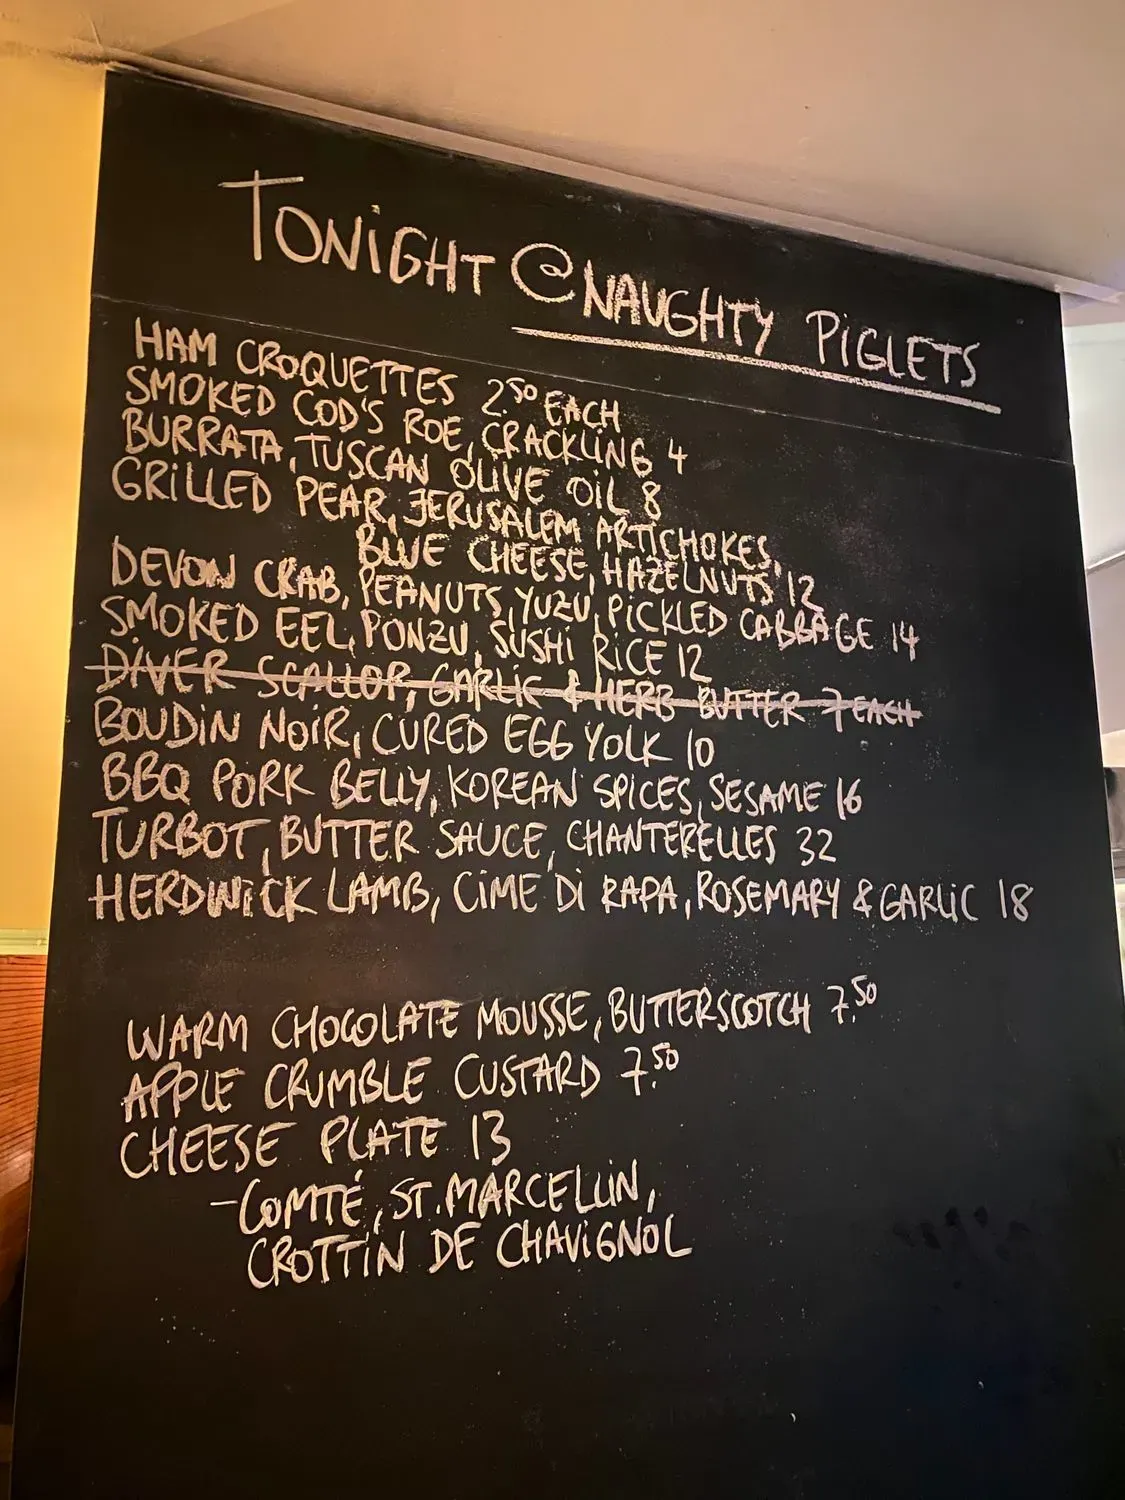 TONIGHT @ NAUGHTY PIGLETS
HAM CROQUETTES 2.50 EACH
SMOKED COD'S ROE, CRACKLING 4
BURRATA, TUSCAN OLIVE OIL 8
GRILLED PEAR, JERUSALEM ARTICHOKES,
BLUE CHEESE, HAZELNUTS 12
DEVON CRAB, PEANUTS, YUZU, PICKLED CABBAGE 14
SMOKED EEL, PONZU, SUSHI RICE 12
DIVER SCALLOP, GARLIC & HERB BUTTER 7 EACH
BOUDIN NOIR, CURED EGG YOLK 10
BBQ PORK BELLY, KOREAN SPICES, SESAME 16
TURBOT, BUTTER SAUCE, CHANTERELLES 32
HERDWICK LAMB, CIME DI RAPA, ROSEMARY & GARLIC 18
WARM CHOCOLATE MOUSSE, BUTTERSCOTCH 7.50
APPLE CRUMBLE CUSTARD 7.50
CHEESE PLATE 13
- COMTÉ, ST. MARCELLIN,
CROTTIN DE CHAVIGNOL